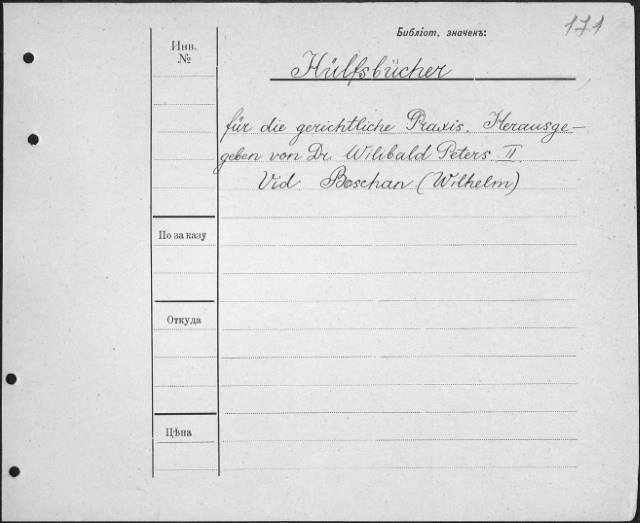 Библіот. значекъ:
171
Инв.
№
Hülfsbücher
für die gerichtliche Praxis. Herausge-
geben von Dr. Wilibald Peters II.
Vid Boschan (Wilhelm)
По заказу
Откуда
Цѣна